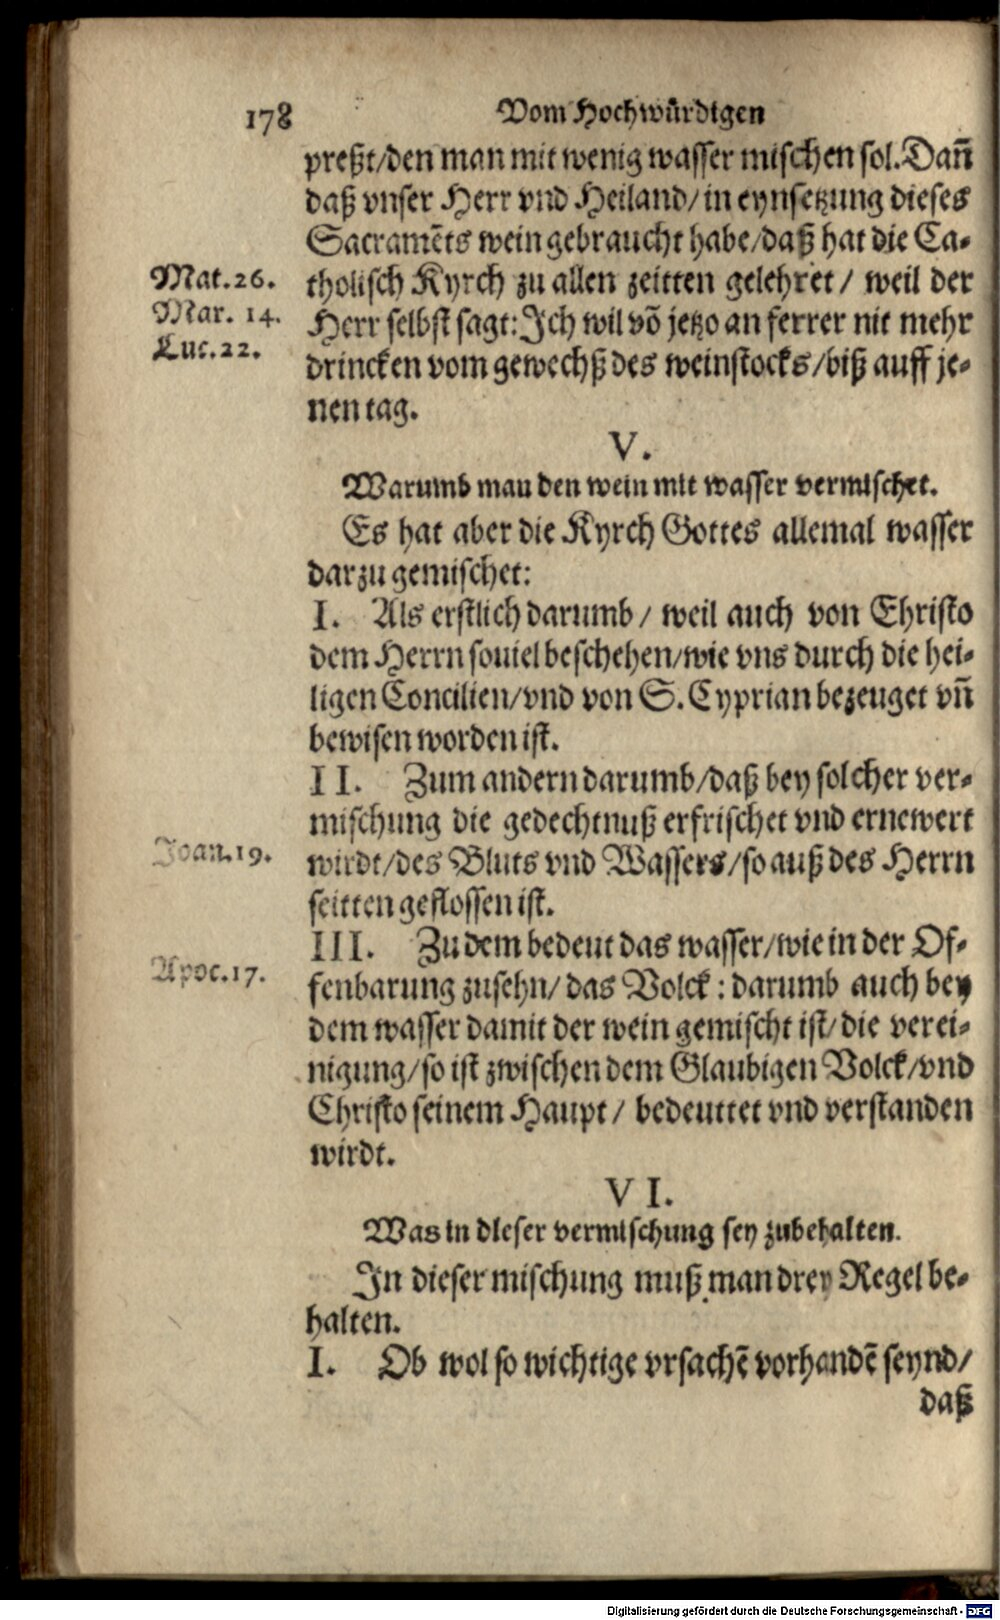 178 Vom Hochwürdigen
preßt/den man mit wenig wasser mischen sol. Dañ
daß vnser Herr vnd Heiland/in eynsetzung dieses
Sacramẽts wein gebraucht habe/daß hat die Ca-
Mat. 26. tholisch Kyrch zu allen zeitten gelehret/ weil der
Mar. 14. Herr selbst sagt: Jch wil võ jetzo an ferrer nit mehr
Luc. 22. drincken vom gewechß des weinstocks/biß auff je-
nen tag.
V.
Warumb man den wein mit wasser vermischet.
Es hat aber die Kyrch Gottes allemal wasser
darzu gemischet:
I. Als erstlich darumb/ weil auch von Christo
dem Herrn souiel beschehen/wie vns durch die hei-
ligen Concilien/vnd von S. Cyprian bezeuget vñ
bewisen worden ist.
II. Zum andern darumb/daß bey solcher ver-
mischung die gedechtnuß erfrischet vnd ernewert
Joan. 19. wirdt/des Bluts vnd Wassers/so auß des Herrn
seitten geflossen ist.
III. Zu dem bedeut das wasser/wie in der Of-
Apoc. 17. fenbarung zusehn/ das Volck: darumb auch bey
dem wasser damit der wein gemischt ist/die verei-
nigung/so ist zwischen dem Glaubigen Volck/vnd
Christo seinem Haupt/ bedeuttet vnd verstanden
wirdt.
VI.
Was in dieser vermischung sey zubehalten.
Jn dieser mischung muß man drey Regel be-
halten.
I. Ob wol so wichtige vrsachẽ vorhandẽ seynd/
daß
Digitalisierung gefördert durch die Deutsche Forschungsgemeinschaft - DFG